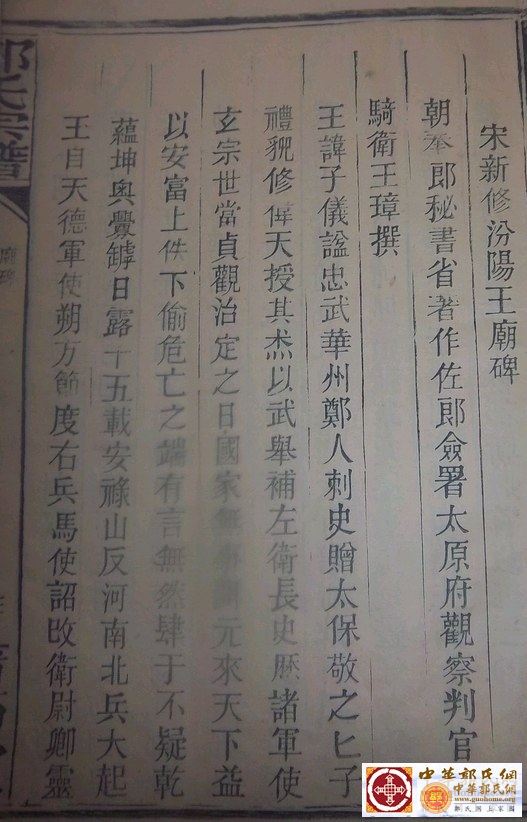 宋新修汾陽王廟碑
朝奉郎秘書省著作佐郎僉署太原府觀察判官
騎衛王璋撰
王諱子儀諡忠武華州鄭人刺史贈太保敬之匕子
禮貌修偉天授其杰以武舉補左衛長史歷諸軍使
玄宗世當貞觀治定之日國家無 元來天下益
以安富上佚下偷危亡之端有言無然肆于不疑乾
蘊坤奥釁罅日露十五載安祿山反河南北兵大起
王自天德軍使朔方節度右兵馬使詔改衛尉卿靈
郭氏宗譜
廟碑
中華郭氏網
中華郭氏網
www.guonet.org